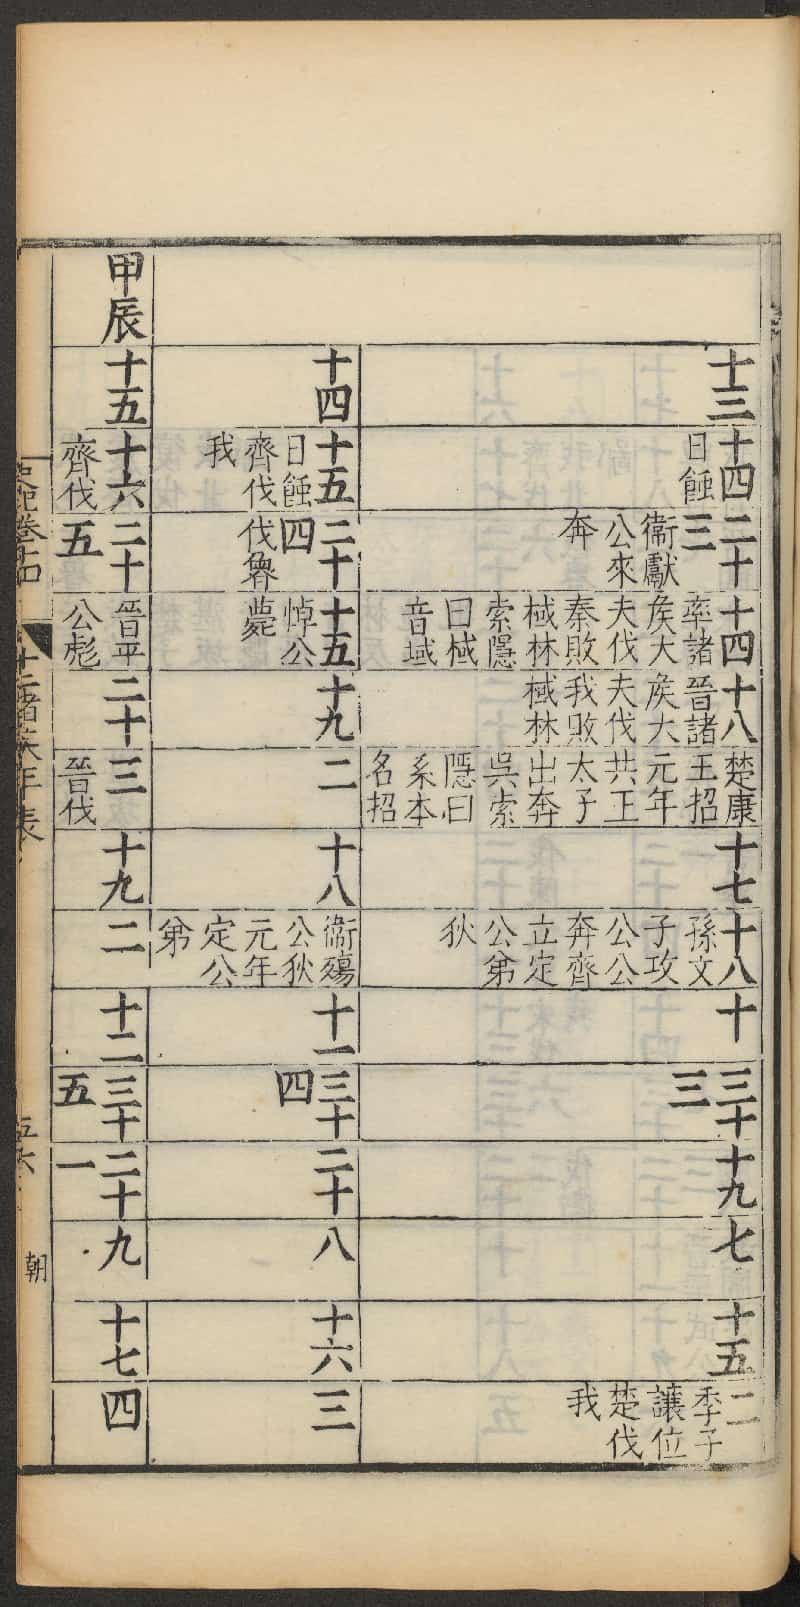 十三
十四
日蝕
二十
三
衞獻
公來
奔
十四
率諸
矦大
夫伐
秦敗
棫林
索隱
曰棫
音域
十八
晉諸
矦大
夫伐
我敗
棫林
楚康
王招
元年
共王
太子
出奔
吳索
隱曰
系本
名招
十七
十八
孫文
子攻
公公
奔齊
立定
公弟
狄
十
三十
三
十九
七
十五
二
季子
讓位
楚伐
我
十四
十五
日蝕
齊伐
我
二十
四
伐魯
十五
悼公
薨
十九
二
十八
衞殤
公狄
元年
定公
弟
十一
三十
四
二十
八
十六
三
甲辰
十五
十六
齊伐
二十
五
晉平
公彪
二十
三
晉伐
十九
二
十二
三十
五
二十
一
九
十七
四
史記卷十四
十二諸矦年表
五六
朝